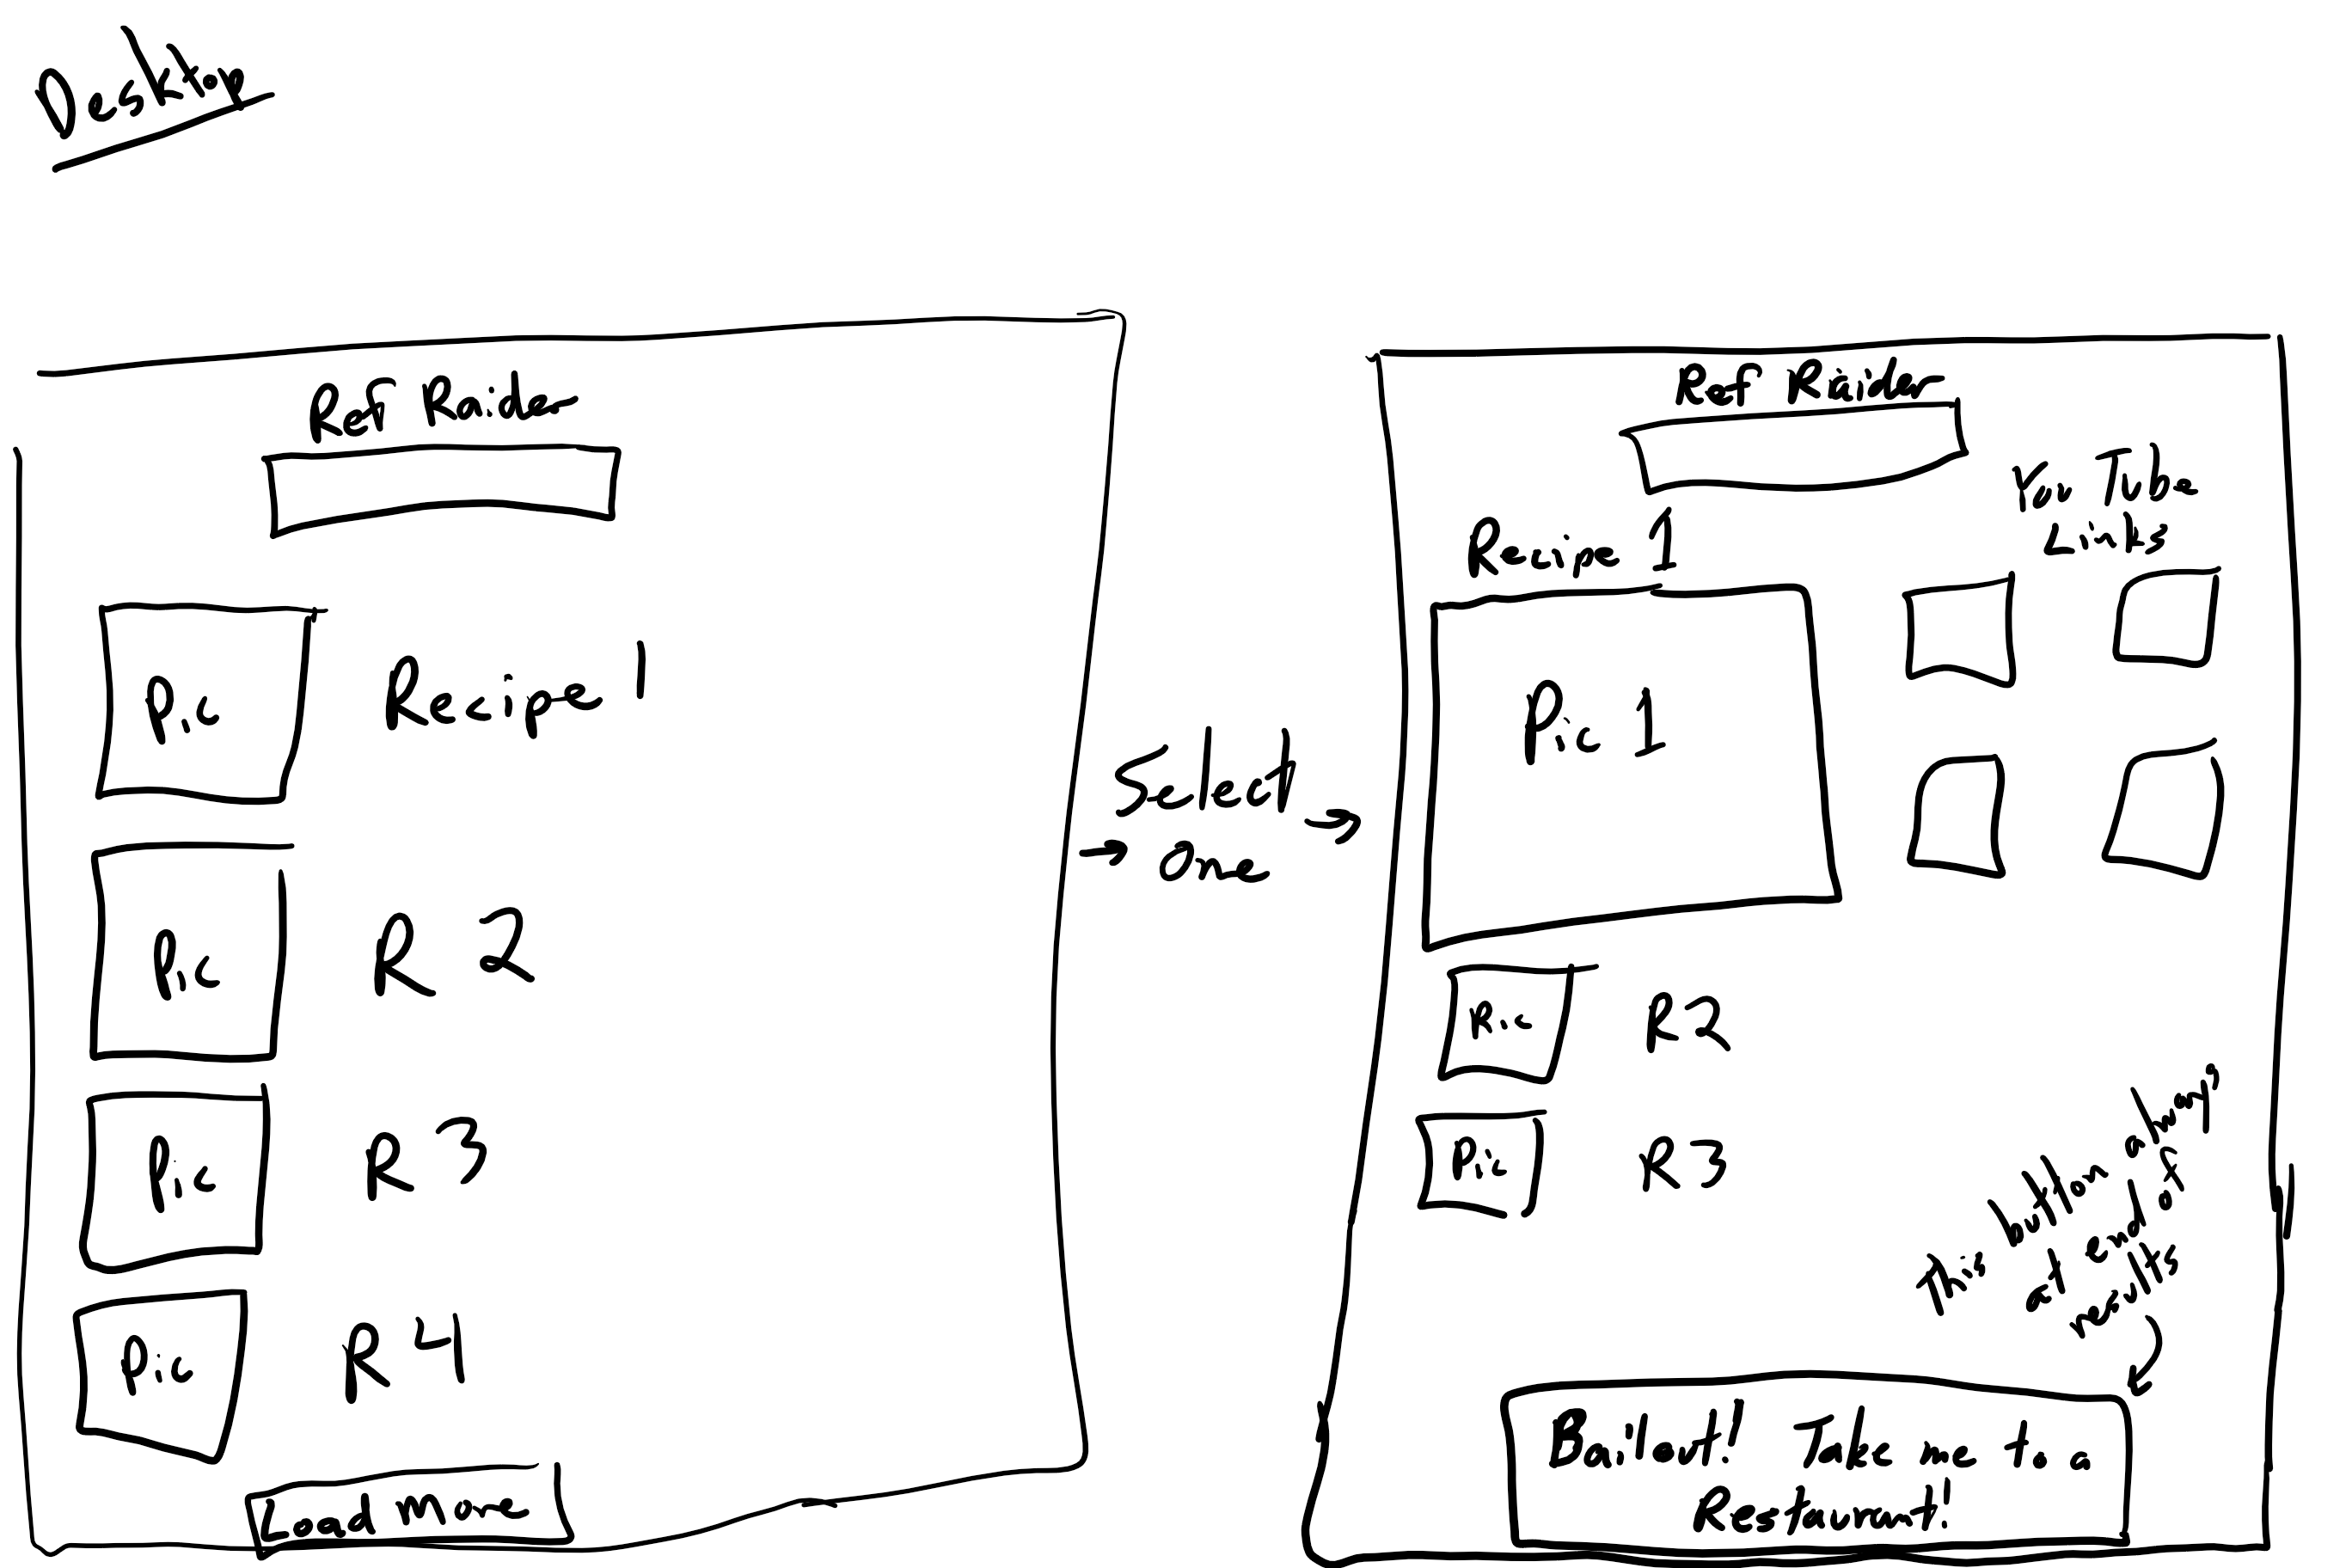 Desktop
Ref Raider
Pic
Recipe 1
Pic
R 2
Pic
R 3
Pic
R 4
Load More
Select
one
Ref Raider
You Tube
Links
Recipe 1
Pic 1
Pic
R2
Pic
R3
This button always
at end of
results
Bailout! Take me to a
Restaurant!